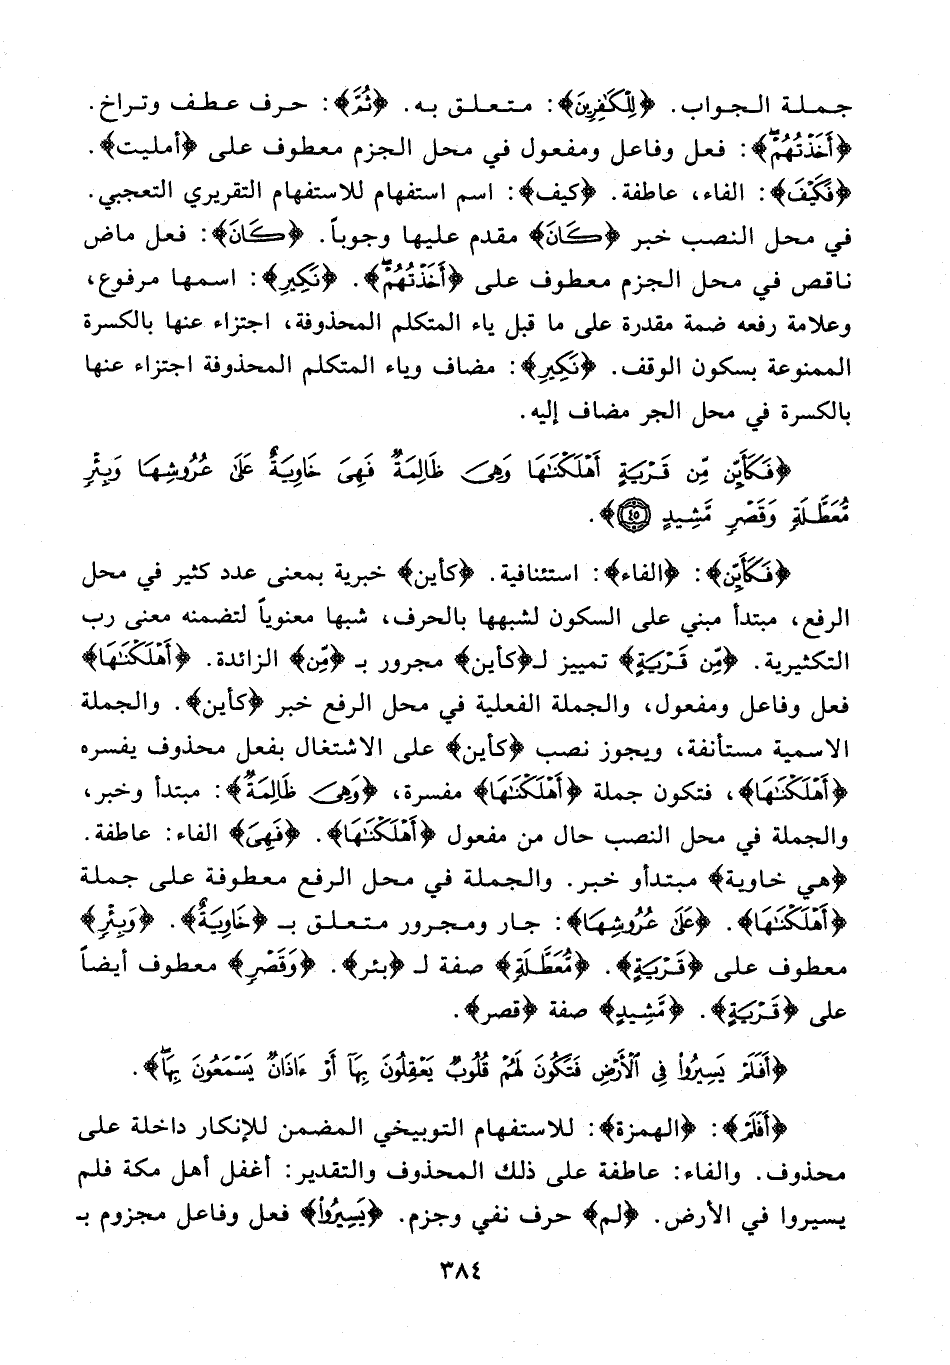 جملة الجواب. ﴿لِلْكَٰفِرِينَ﴾: متعلق به. ﴿ثُمَّ﴾: حرف عطف وتراخ.
﴿أَخَذْتُهُمْۖ﴾: فعل وفاعل ومفعول في محل الجزم معطوف على ﴿أمليت﴾.
﴿فَكَيْفَ﴾: الفاء، عاطفة. ﴿كيف﴾: اسم استفهام للاستفهام التقريري التعجبي.
في محل النصب خبر ﴿كَانَ﴾ مقدم عليها وجوباً. ﴿كَانَ﴾: فعل ماض
ناقص في محل الجزم معطوف على ﴿أَخَذْتُهُمْۖ﴾. ﴿نَكِيرِ﴾: اسمها مرفوع،
وعلامة رفعه ضمة مقدرة على ما قبل ياء المتكلم المحذوفة، اجتزاء عنها بالكسرة
الممنوعة بسكون الوقف. ﴿نَكِيرِ﴾: مضاف وياء المتكلم المحذوفة اجتزاء عنها
بالكسرة في محل الجر مضاف إليه.
﴿فَكَأَيِّن مِّن قَرْيَةٍ أَهْلَكْنَٰهَا وَهِىَ ظَالِمَةٌ فَهِىَ خَاوِيَةٌ عَلَىٰ عُرُوشِهَا وَبِئْرٍ
مُّعَطَّلَةٍ وَقَصْرٍ مَّشِيدٍ ٤٥﴾.
﴿فَكَأَيِّن﴾: ﴿الفاء﴾: استئنافية. ﴿كأين﴾ خبرية بمعنى عدد كثير في محل
الرفع، مبتدأ مبني على السكون لشبهها بالحرف، شبها معنوياً لتضمنه معنى رب
التكثيرية. ﴿مِّن قَرْيَةٍ﴾ تمييز لـ﴿كأين﴾ مجرور بـ ﴿مِّن﴾ الزائدة. ﴿أَهْلَكْنَٰهَا﴾
فعل وفاعل ومفعول، والجملة الفعلية في محل الرفع خبر ﴿كأين﴾. والجملة
الاسمية مستأنفة، ويجوز نصب ﴿كأين﴾ على الاشتغال بفعل محذوف يفسره
﴿أَهْلَكْنَٰهَا﴾، فتكون جملة ﴿أَهْلَكْنَٰهَا﴾ مفسرة، ﴿وَهِىَ ظَالِمَةٌ﴾: مبتدأ وخبر،
والجملة في محل النصب حال من مفعول ﴿أَهْلَكْنَٰهَا﴾. ﴿فَهِىَ﴾ الفاء: عاطفة.
﴿هي خاوية﴾ مبتدأو خبر. والجملة في محل الرفع معطوفة على جملة
﴿أَهْلَكْنَٰهَا﴾. ﴿عَلَىٰ عُرُوشِهَا﴾: جار ومجرور متعلق بـ ﴿خَاوِيَةٌ﴾. ﴿وَبِئْرٍ﴾
معطوف على ﴿قَرْيَةٍ﴾. ﴿مُّعَطَّلَةٍ﴾ صفة لـ ﴿بئر﴾. ﴿وَقَصْرٍ﴾ معطوف أيضاً
على ﴿قَرْيَةٍ﴾. ﴿مَّشِيدٍ﴾ صفة ﴿قصر﴾.
﴿أَفَلَمْ يَسِيرُوا۟ فِى ٱلْأَرْضِ فَتَكُونَ لَهُمْ قُلُوبٌ يَعْقِلُونَ بِهَآ أَوْ ءَاذَانٌ يَسْمَعُونَ بِهَاۖ﴾.
﴿أَفَلَمْ﴾: ﴿الهمزة﴾: للاستفهام التوبيخي المضمن للإنكار داخلة على
محذوف. والفاء: عاطفة على ذلك المحذوف والتقدير: أغفل أهل مكة فلم
يسيروا في الأرض. ﴿لم﴾ حرف نفي وجزم. ﴿يَسِيرُوا۟﴾ فعل وفاعل مجزوم بـ
٣٨٤